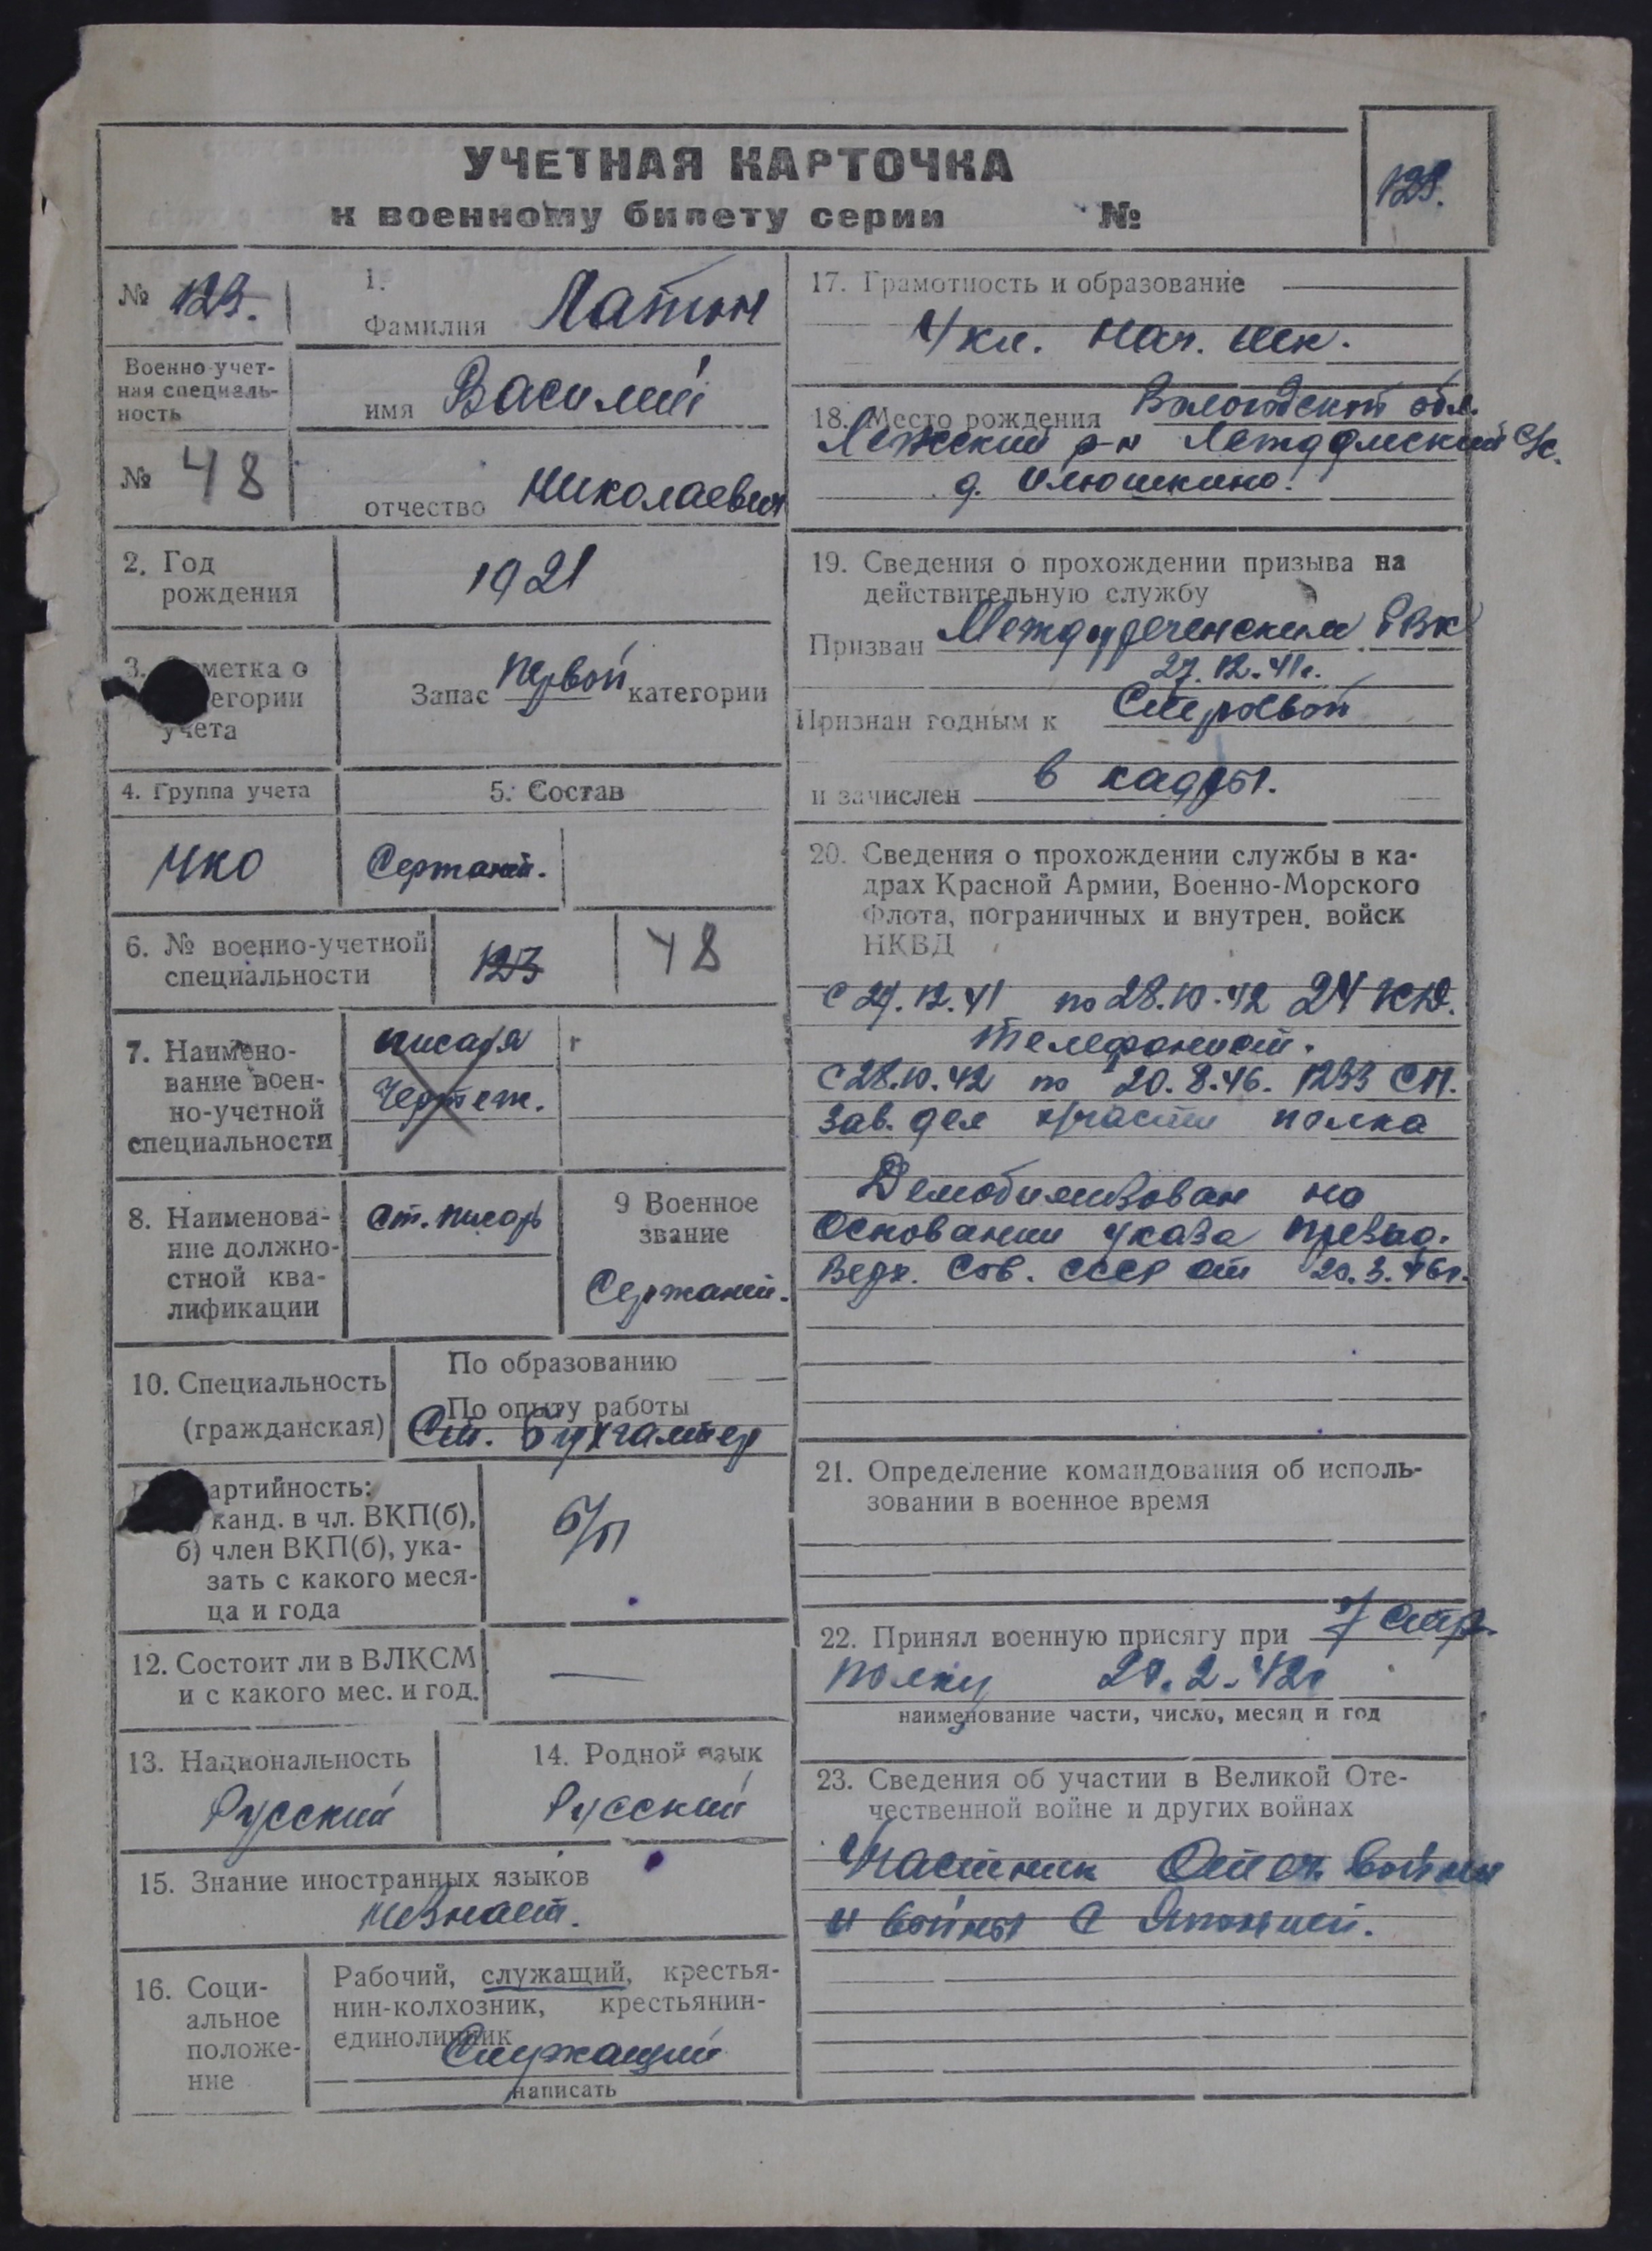 УЧЕТНАЯ КАРТОЧКА
к военному билету серии №
№ 123.
1.
Фамилия Латин
Военно-учет-
ная специаль-
ность
имя Василий
№ 48
отчество Николаевич
2. Год
рождения
1921
3. метка о
егории
учета
Запас первой категории
4. Группа учета
5. Состав
Сержант.
6. № военно-учетной
специальности
123
48
7. Наимено-
вание воен-
но-учетной
специальности
писаря
Чертеж.
8. Наименова-
ние должно-
стной ква-
лификации
Ст. писарь
9 Военное
звание
Сержант.
10. Специальность
(гражданская)
По образованию
По опыту работы
Ст. Бухгалтер
артийность:
канд. в чл. ВКП(б),
б) член ВКП(б), ука-
зать с какого меся-
ца и года
б/п
12. Состоит ли в ВЛКСМ
и с какого мес. и год.
—
13. Национальность
Русский
14. Родной язык
Русский
15. Знание иностранных языков
не знает.
16. Соци-
альное
положе-
ние
Рабочий, служащий, крестья-
нин-колхозник, крестьянин-
единоличник
Служащий
написать
17. Грамотность и образование
4 кл. нач. шк.
18. Место рождения Вологодской обл.
Лежский р-н с/с.
д. Олюшкино.
19. Сведения о прохождении призыва на
действительную службу
Призван Междуреченским РВК
27.12.41г.
Признан годным к Строевой
и зачислен в кадры.
20. Сведения о прохождении службы в ка-
драх Красной Армии, Военно-Морского
Флота, пограничных и внутрен. войск
НКВД
с 27.12.41 по 28.10.42 24 КД.
телефонист.
С 28.10.42 по 20.8.46. 1233 СП.
Зав. дел х/части полка
Демобилизован на
основании указа Презид.
Верх. Сов. СССР от 20.3.46г.
21. Определение командования об исполь-
зовании в военное время
22. Принял военную присягу при 7 стр.
полку 2.42г
наименование части, число, месяц и год
23. Сведения об участии в Великой Оте-
чественной войне и других войнах
Участник Отеч. войны
и войны с Японией.